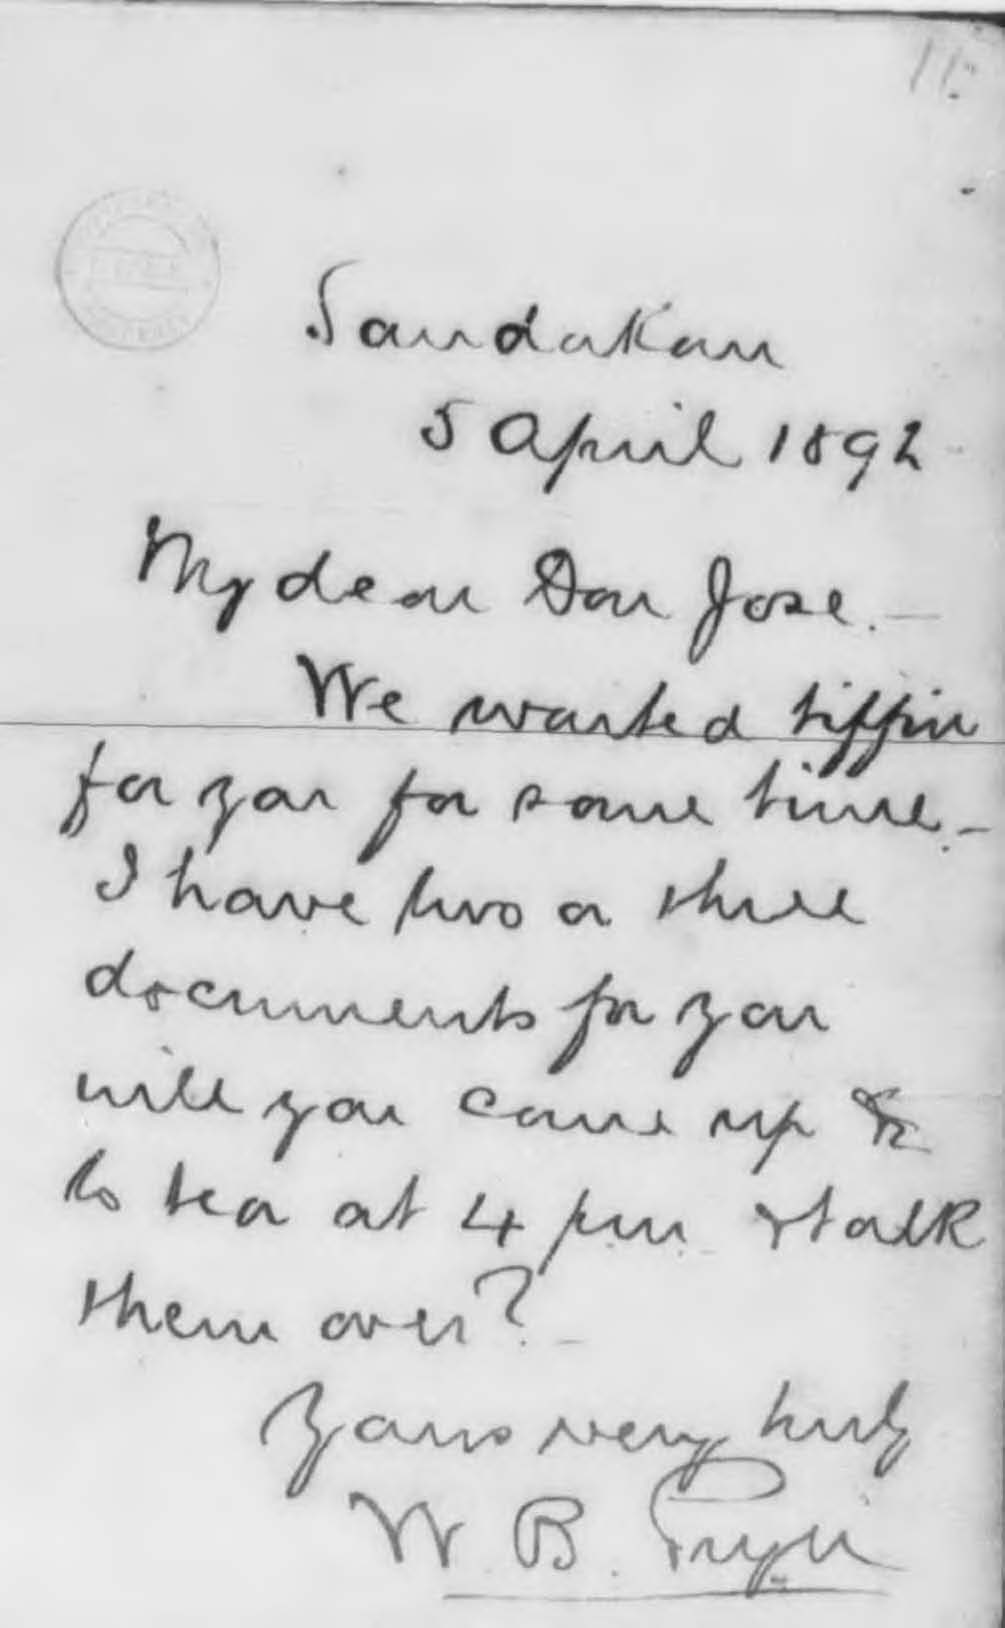 11.
Sandakan
5 April 1892
My dear Don Jose. —
We wanted tiffin
for you for some time. —
I have two or three
documents for you
will you come up &
to tea at 4 pm & talk
them over? —
Yours very truly
W. B. Pryer